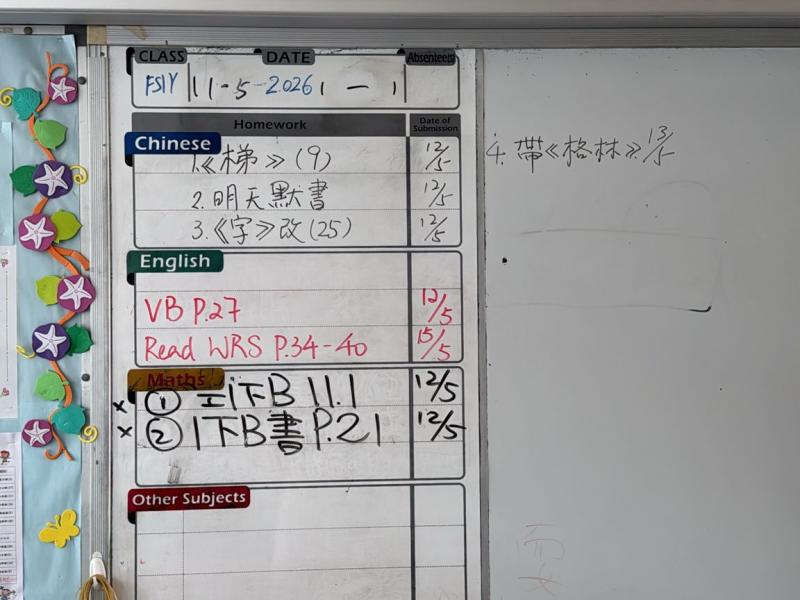 CLASS DATE Absentees
11-5-2026 1 — 1
Homework Date of Submission
Chinese
1.《梯》(9) 12/5
2.明天默書 12/5
3.《字》改(25) 12/5
4.帶《格林》13/5
English
VB P.27 12/5
Read WRS P.34-40 15/5
Maths
① 工1下B 11.1 12/5
② 1下B書 P.21 12/5
Other Subjects